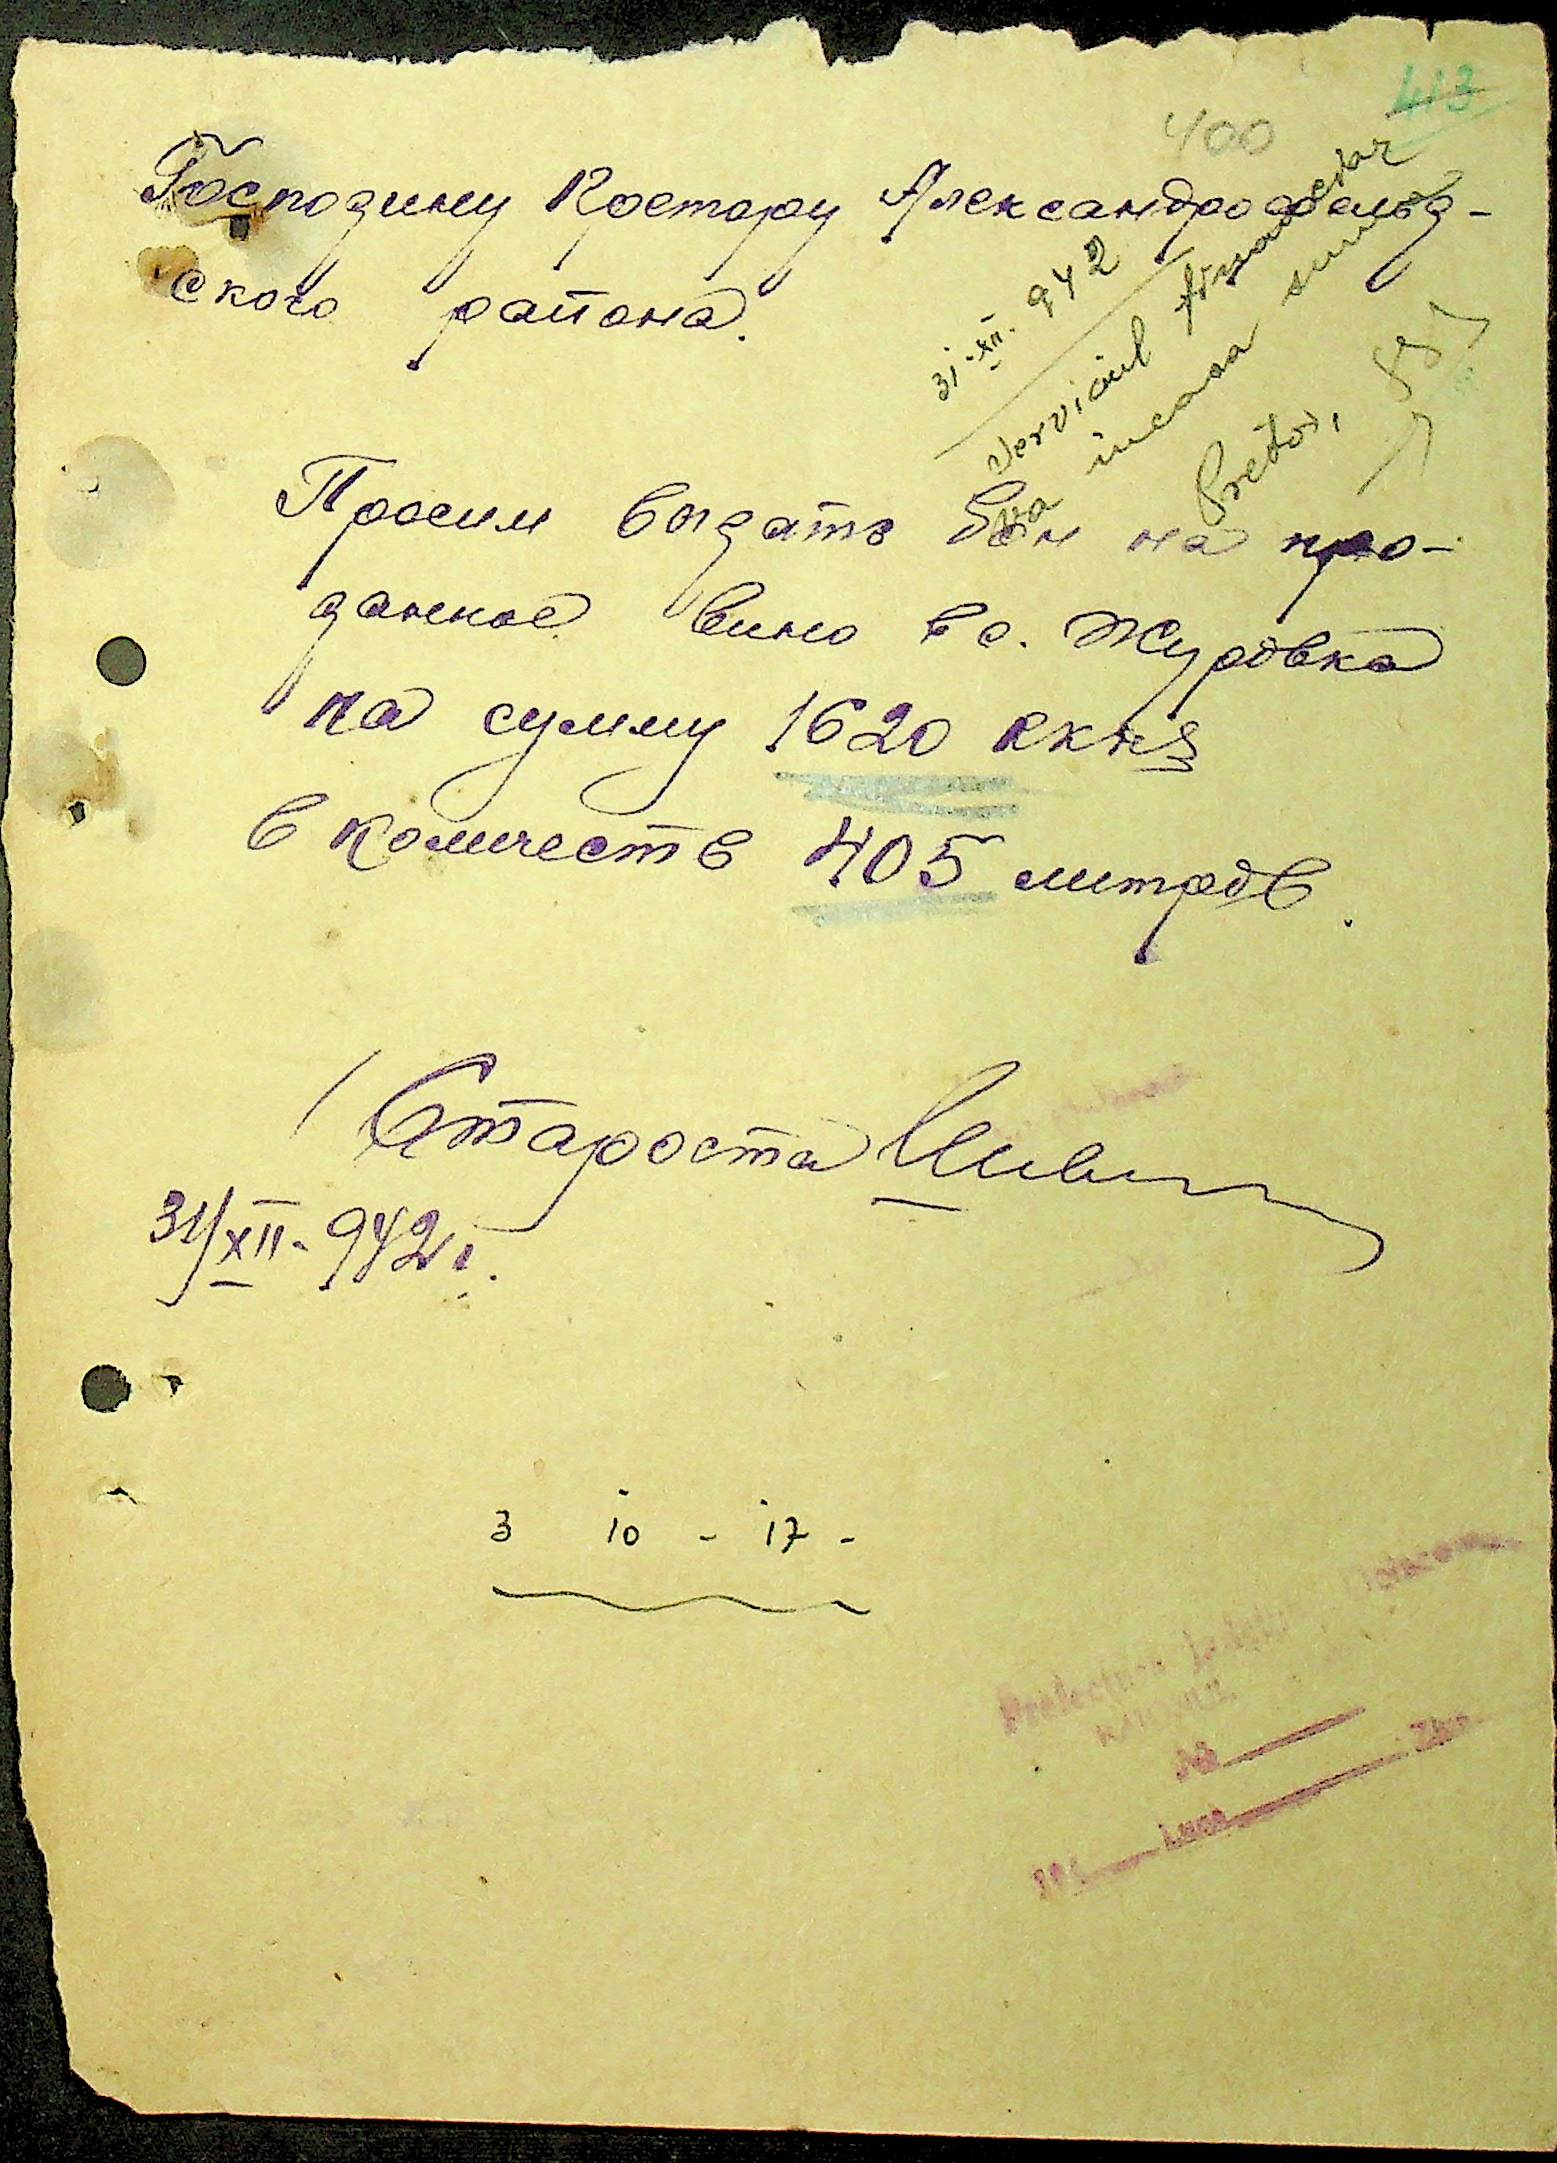 413
400
Господину Претору Александрофельд-
ского района.
31-XII-942
Serviciul financiar
va incasa suma
Pretor,
Просим выдать бон на про-
данное вино в с. Журовка
на сумму 1620 рккя
в количеств 405 литров.
Староста
31/XII-942 г.
3 10 - 17 -
Prefectura
No
194 Luna Ziua